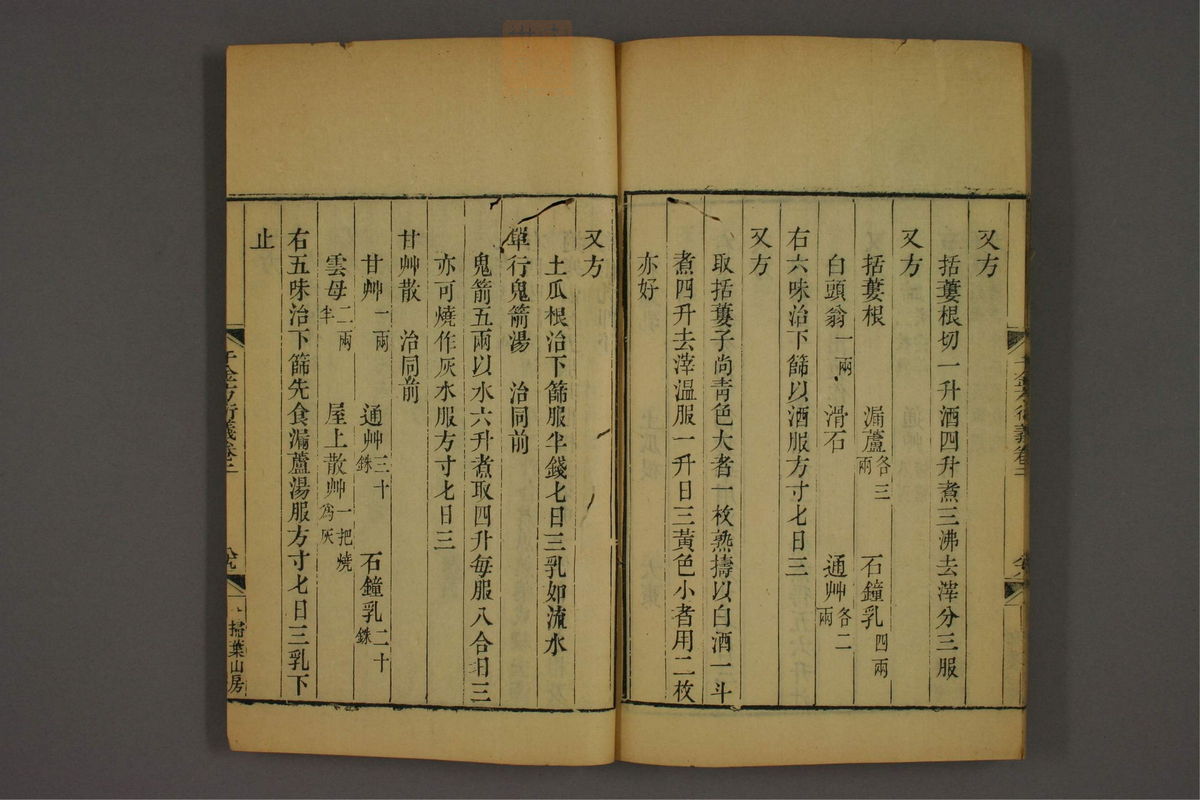 又方
括蔞根切一升酒四升煮三沸去滓分三服
又方
括蔞根 漏蘆各三兩 石鐘乳四兩
白頭翁一兩 滑石 通艸各二兩
右六味治下篩以酒服方寸匕日三
又方
取括蔞子尚靑色大者一枚熟擣以白酒一斗
煮四升去滓温服一升日三黃色小者用二枚
亦好
又方
土瓜根治下篩服半錢匕日三乳如流水
單行鬼箭湯 治同前
鬼箭五兩以水六升煮取四升每服八合日三
亦可燒作灰水服方寸匕日三
甘艸散 治同前
甘艸一兩 通艸三十銖 石鐘乳二十銖
雲母二兩半 屋上散艸一把燒爲灰
右五味治下篩先食漏蘆湯服方寸匕日三乳下
止
千金方衍義卷二
掃葉山房